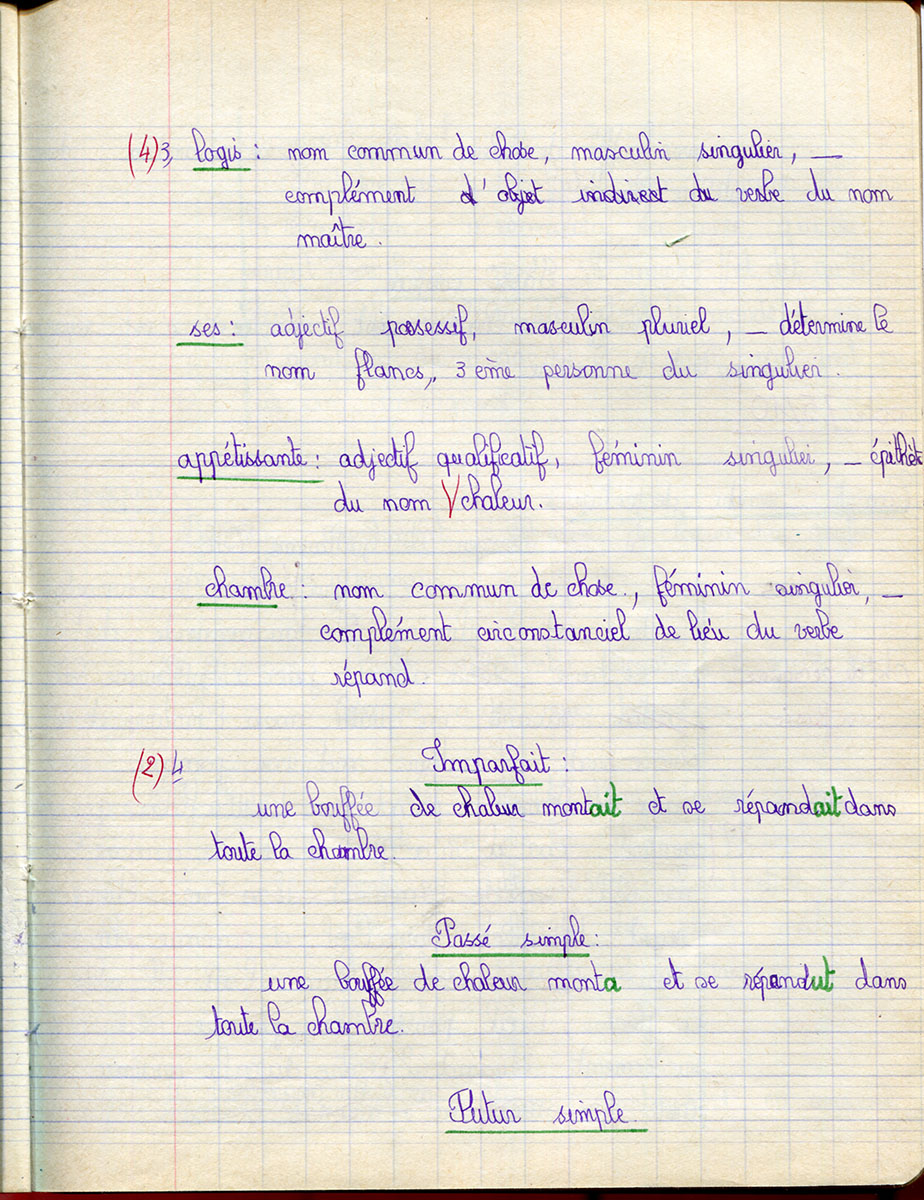 (4) 3, logis : nom commun de chose, masculin singulier, —
complément d'objet indirect du verbe du nom
maître.
ses : adjectif possessif, masculin pluriel, — détermine le
nom flancs,, 3 ème personne du singulier.
appétissante : adjectif qualificatif, féminin singulier, — épithète
du nom V chaleur.
chambre : nom commun de chose., féminin singulier, —
complément circonstanciel de lieu du verbe
répand.
(2) 4 Imparfait :
une bouffée de chaleur montait et se répandait dans
toute la chambre.
Passé simple :
une bouffée de chaleur monta et se répandut dans
toute la chambre.
Futur simple